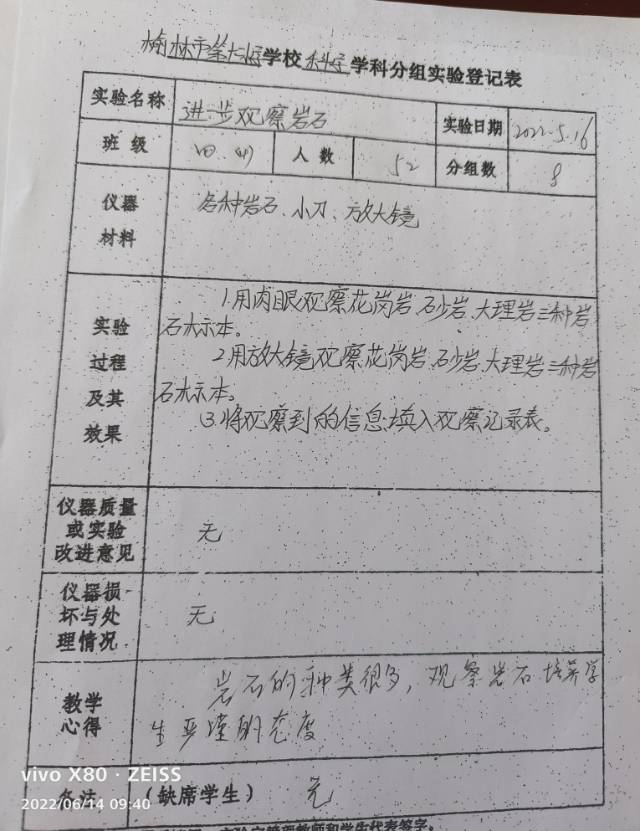 榆林市第十小学校科学学科分组实验登记表
实验名称 进一步观察岩石 实验日期 2022.5.16
班级 四.(4) 人数 52 分组数 8
仪器
材料
各种岩石、小刀、放大镜
实验
过程
及其
效果
1.用肉眼观察花岗岩、砂岩、大理岩三种岩
石标本。
2.用放大镜观察花岗岩、砂岩、大理岩三种岩
石标本。
3.将观察到的信息填入观察记录表。
仪器质量
或实验
改进意见
无
仪器损
坏与处
理情况
无
教学
心得
岩石的种类很多，观察岩石培养学
生严谨的态度
备注 (缺席学生) 无
vivo X80 · ZEISS
2022/06/14 09:40
实验室管理教师和学生代表签字。